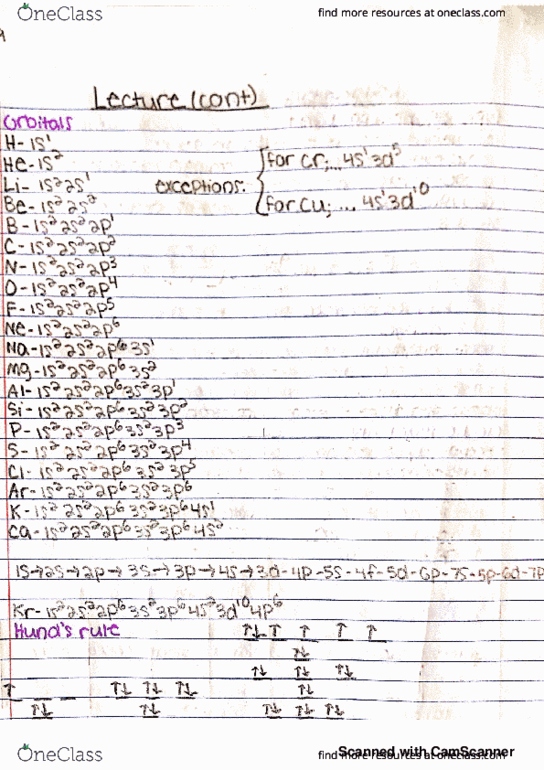 OneClass find more resources at oneclass.com
Lecture (cont)
Orbitals
H- 1s¹
He- 1s²
Li- 1s²2s¹
Be- 1s²2s²
B- 1s²2s²2p¹
C- 1s²2s²2p²
N- 1s²2s²2p³
O- 1s²2s²2p⁴
F- 1s²2s²2p⁵
Ne- 1s²2s²2p⁶
Na- 1s²2s²2p⁶3s¹
Mg- 1s²2s²2p⁶3s²
Al- 1s²2s²2p⁶3s²3p¹
Si- 1s²2s²2p⁶3s²3p²
P- 1s²2s²2p⁶3s²3p³
S- 1s²2s²2p⁶3s²3p⁴
Cl- 1s²2s²2p⁶3s²3p⁵
Ar- 1s²2s²2p⁶3s²3p⁶
K- 1s²2s²2p⁶3s²3p⁶4s¹
Ca- 1s²2s²2p⁶3s²3p⁶4s²
exceptions:
for Cr; ...4s¹3d⁵
for Cu; ... 4s¹3d¹⁰
1s→2s→2p→3s→3p→4s→3d-4p-5s-4f-5d-6p-7s-5p-6d-7p
Kr- 1s²2s²2p⁶3s²3p⁶4s²3d¹⁰4p⁶
Hund's rule ↑↓ ↑ ↑ ↑ ↑
↑↓
↑↓ ↑↓ ↑↓
↑ ↑↓ ↑↓ ↑↓ ↑↓
↑↓ ↑↓ ↑↓ ↑↓ ↑↓
OneClass find more resources at oneclass.com
Scanned with CamScanner